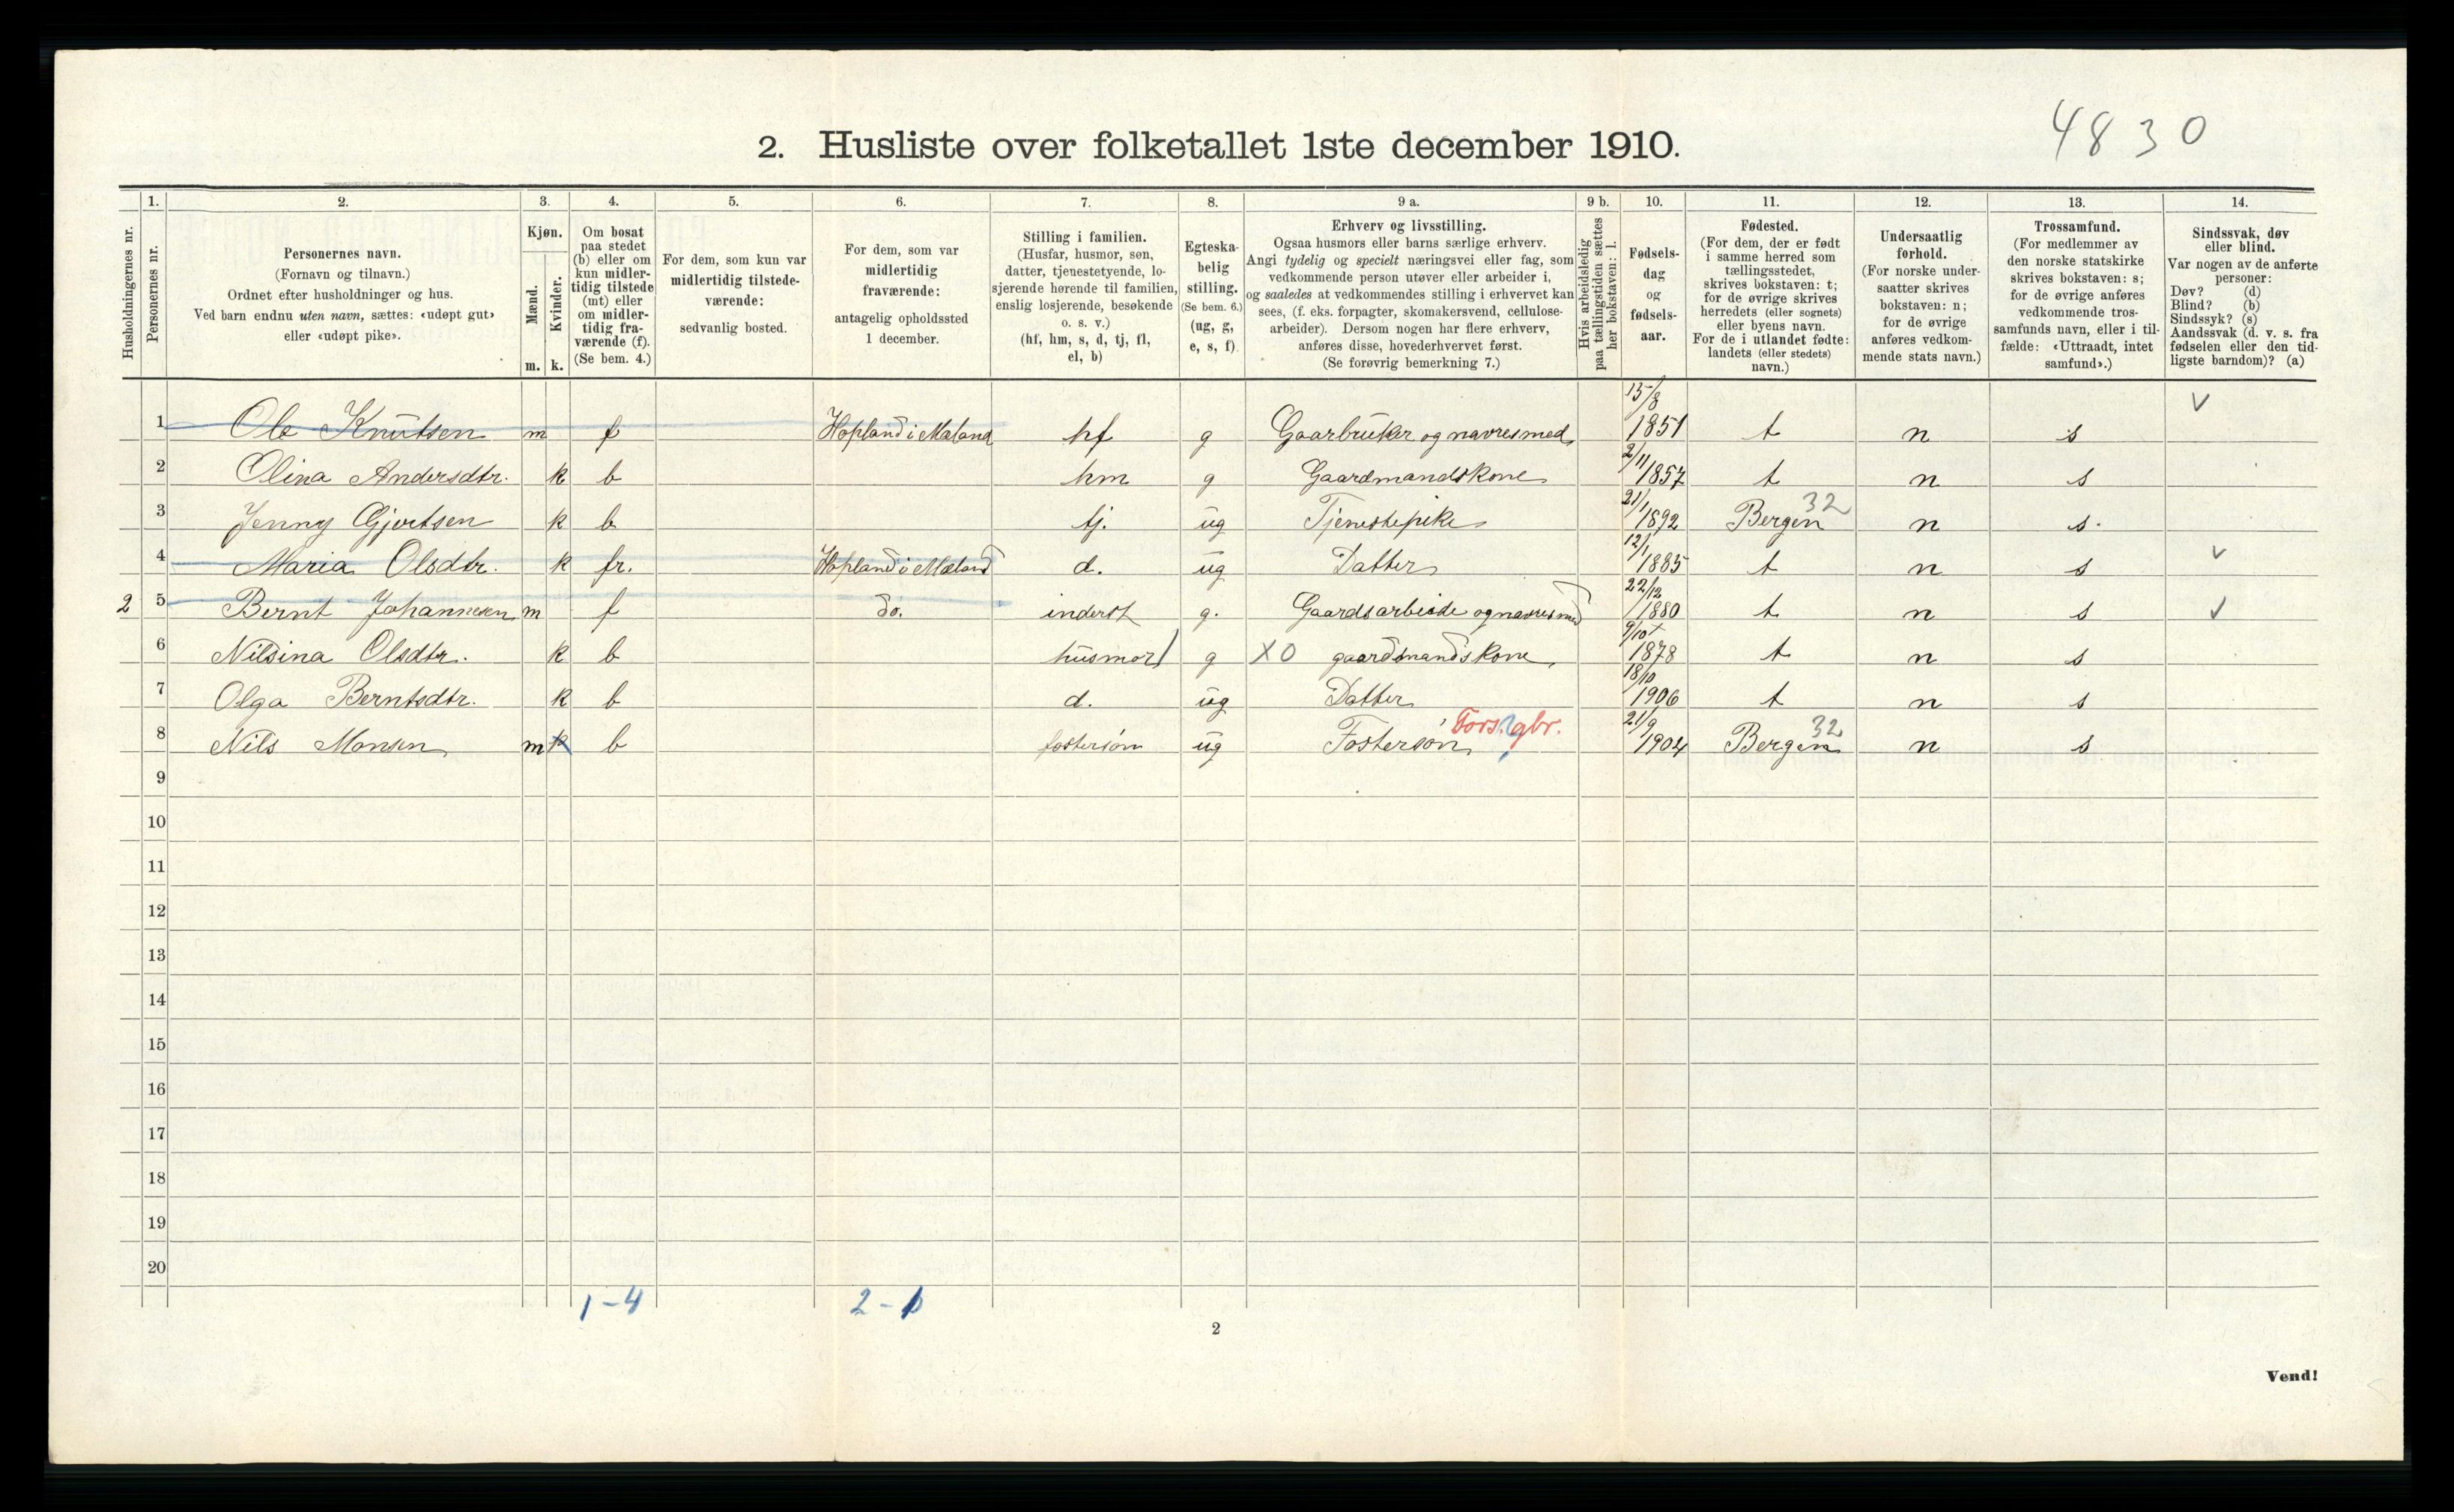 4830
2. Husliste over folketallet 1ste december 1910.
Husholdningernes nr.
1.
Personernes nr.
2.
Personernes navn.
(Fornavn og tilnavn.)
Ordnet efter husholdninger og hus.
Ved barn endnu uten navn, sættes: «udøpt gut»
eller «udøpt pike».
3.
Kjøn.
Mænd.
Kvinder.
m. k.
4.
Om bosat
paa stedet
(b) eller om
kun midler-
tidig tilstede
(mt) eller
om midler-
tidig fra-
værende (f).
(Se bem. 4.)
5.
For dem, som kun var
midlertidig tilstede-
værende:
sedvanlig bosted.
6.
For dem, som var
midlertidig
fraværende:
antagelig opholdssted
1 december.
7.
Stilling i familien.
(Husfar, husmor, søn,
datter, tjenestetyende, lo-
sjerende hørende til familien,
enslig losjerende, besøkende
o. s. v.)
(hf, hm, s, d, tj, fl,
el, b)
8.
Egteska-
belig
stilling.
(Se bem. 6.)
(ug, g,
e, s, f)
9 a.
Erhverv og livsstilling.
Ogsaa husmors eller barns særlige erhverv.
Angi tydelig og specielt næringsvei eller fag, som
vedkommende person utøver eller arbeider i,
og saaledes at vedkommendes stilling i erhvervet kan
sees, (f. eks. forpagter, skomakersvend, cellulose-
arbeider). Dersom nogen har flere erhverv,
anføres disse, hovederhvervet først.
(Se forøvrig bemerkning 7.)
9 b.
Hvis arbeidsledig
paa tællingstiden sættes
her bokstaven: l.
10.
Fødsels-
dag
og
fødsels-
aar.
11.
Fødested.
(For dem, der er født
i samme herred som
tællingsstedet,
skrives bokstaven: t;
for de øvrige skrives
herredets (eller sognets)
eller byens navn.
For de i utlandet fødte:
landets (eller stedets)
navn.)
12.
Undersaatlig
forhold.
(For norske under-
saatter skrives
bokstaven: n;
for de øvrige
anføres vedkom-
mende stats navn.)
13.
Trossamfund.
(For medlemmer av
den norske statskirke
skrives bokstaven: s;
for de øvrige anføres
vedkommende tros-
samfunds navn, eller i til-
fælde: «Uttraadt, intet
samfund».)
14.
Sindssvak, døv
eller blind.
Var nogen av de anførte
personer:
Døv? (d)
Blind? (b)
Sindssyk? (s)
Aandssvak (d. v. s. fra
fødselen eller den tid-
ligste barndom)? (a)
1 Ole Knutsen m f Hopland i Mæland hf g Gaarbruker og navresmed 15/8 1851 t n s ✓
2 Olina Andersdtr. k b hm g Gaardmandskone 2/11 1857 t n s
3 Jenny Gjertsen k b tj. ug Tjenestepike 21/1 1892 Bergen 32 n s.
4 Maria Olsdtr. k fr. Hopland i Mæland d. ug Datter 12/1 1885 t n s ✓
2 5 Bernt Johannesen m f do. inderst g. Gaardsarbeide og navresmed 22/12 1880 t n s ✓
6 Nilsina Olsdtr. k b husmor g XO gaardsmandskone, 9/10 1878 t n s
7 Olga Berntsdtr. k b d. ug Datter 18/10 1906 t n s
8 Nils Monsen m k b fostersøn ug Fostersøn, Fors. gbr. 21/9 1904 Bergen 32 n s
9
10
11
12
13
14
15
16
17
18
19
20
1-4 2-1
2
Vend!